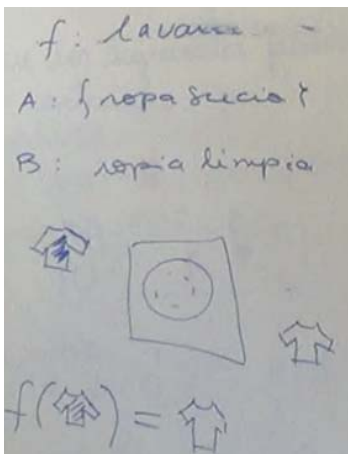 f: lavar
A: { ropa sucia }
B: ropia limpia
f( ) =